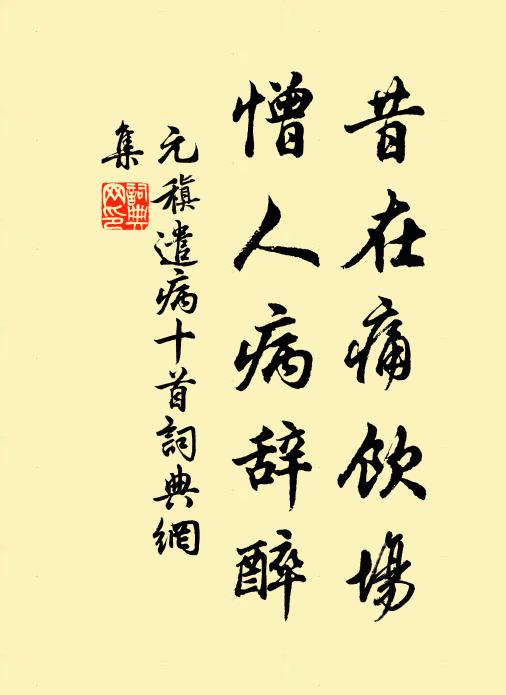 昔在痛飲場
憎人病辞醉
元稹遣病十首詞典網
集
詞典网印